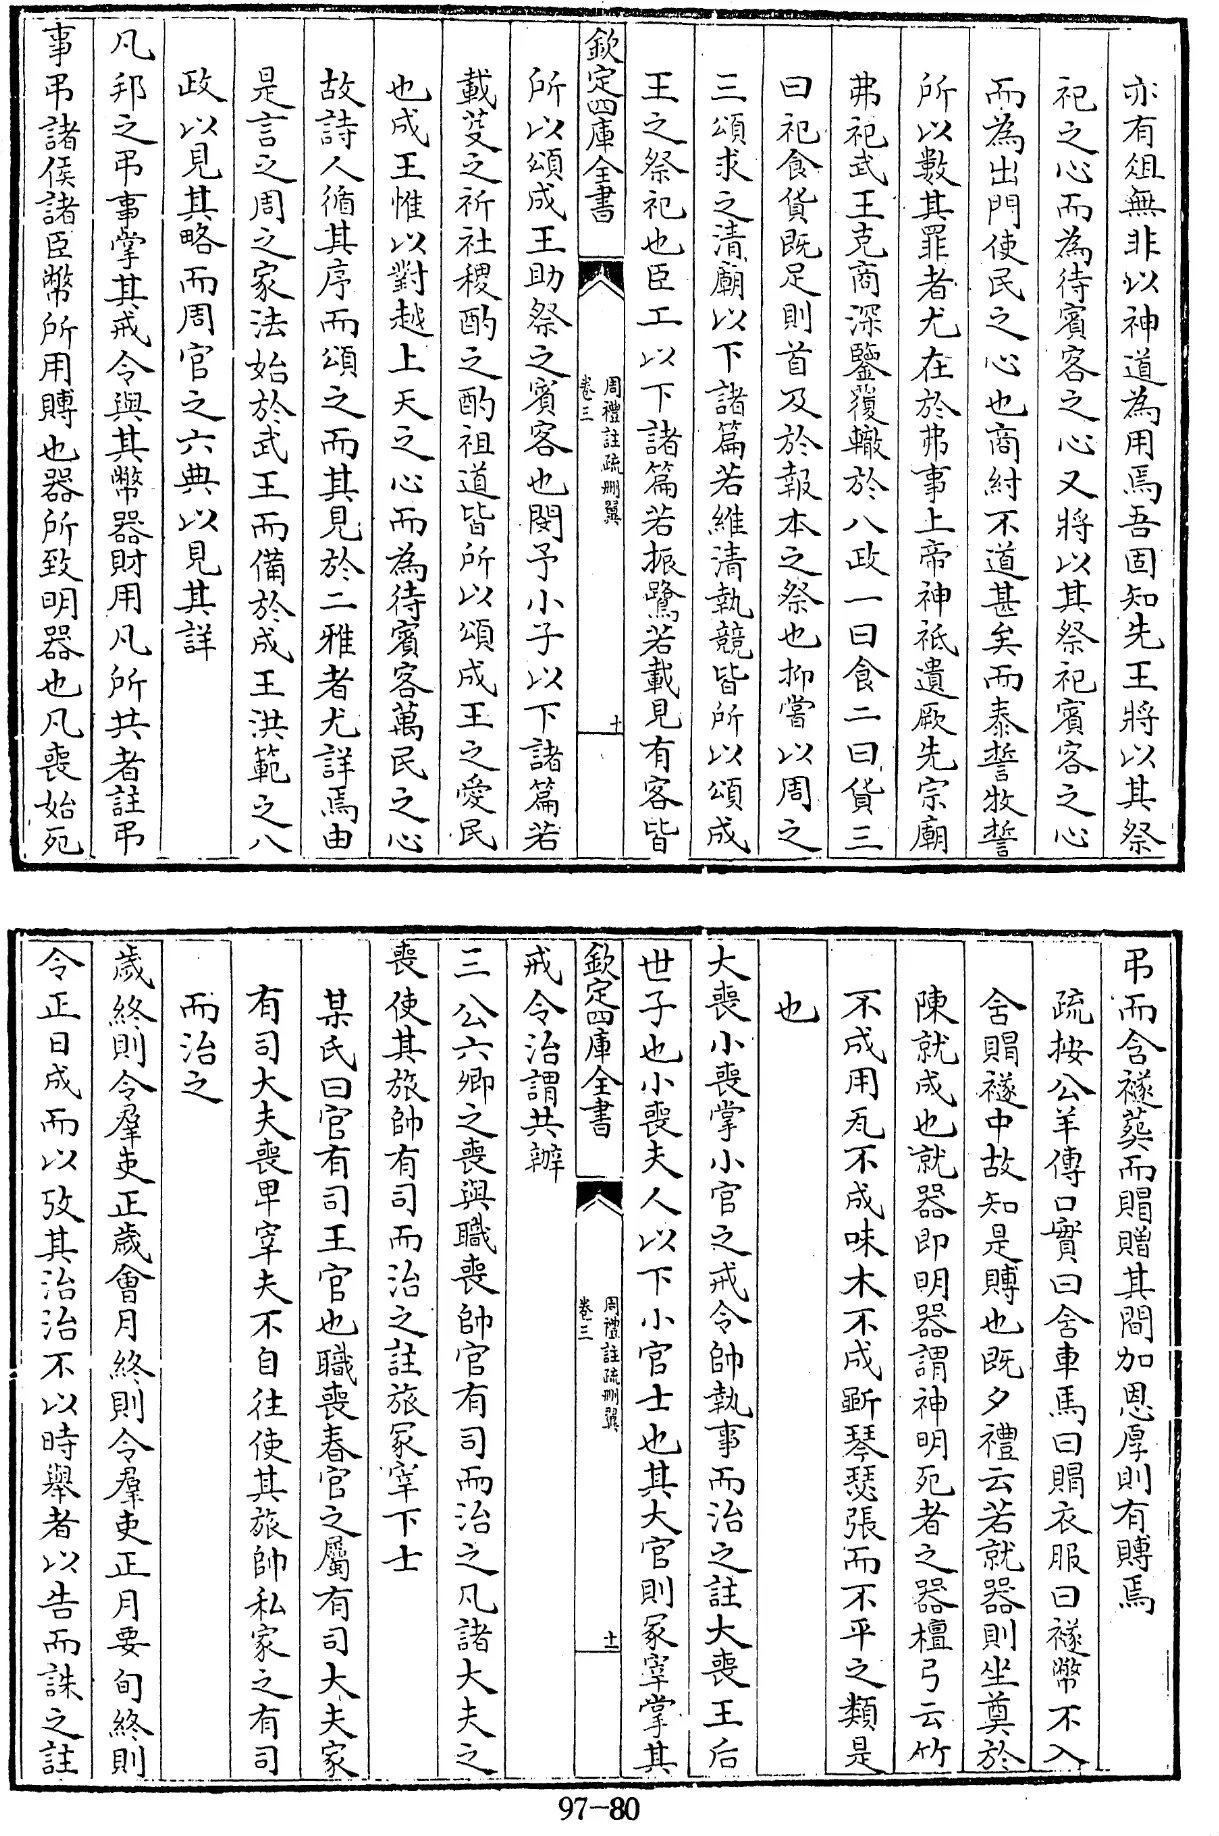 亦有俎無非以神道為用焉吾固知先王將以其祭
祀之心而為待賓客之心又將以其祭祀賓客之心
而為出門使民之心也商紂不道甚矣而泰誓牧誓
所以數其罪者尤在於弗事上帝神祗遺厥先宗廟
弗祀武王克商深鑒覆轍於八政一曰食二曰貨三
曰祀食貨既足則首及於報本之祭也抑嘗以周之
三頌求之清廟以下諸篇若維清執競皆所以頌成
王之祭祀也臣工以下諸篇若振鷺若載見有客皆
欽定四庫全書
周禮註疏刪翼
卷三
十
所以頌成王助祭之賓客也閔予小子以下諸篇若
載芟之祈社稷酌之酌祖道皆所以頌成王之愛民
也成王惟以對越上天之心而為待賓客萬民之心
故詩人循其序而頌之而其見於二雅者尤詳焉由
是言之周之家法始於武王而備於成王洪範之八
政以見其略而周官之六典以見其詳
凡邦之弔事掌其戒令與其幣器財用凡所共者註弔
事弔諸侯諸臣幣所用賻也器所致明器也凡喪始死
弔而含襚葬而賵贈其間加恩厚則有賻焉
疏按公羊傳口實曰含車馬曰賵衣服曰襚幣不入
含賵襚中故知是賻也既夕禮云若就器則坐奠於
陳就成也就器即明器謂神明死者之器檀弓云竹
不成用瓦不成味木不成斲琴瑟張而不平之類是
也
大喪小喪掌小官之戒令帥執事而治之註大喪王后
世子也小喪夫人以下小官士也其大官則冢宰掌其
欽定四庫全書
周禮註疏刪翼
卷三
十一
戒令治謂共辦
三公六卿之喪與職喪帥官有司而治之凡諸大夫之
喪使其旅帥有司而治之註旅冢宰下士
某氏曰官有司王官也職喪春官之屬有司大夫家
有司大夫喪卑宰夫不自往使其旅帥私家之有司
而治之
歲終則令羣吏正歲會月終則令羣吏正月要旬終則
令正日成而以攷其治治不以時舉者以告而誅之註
97-80